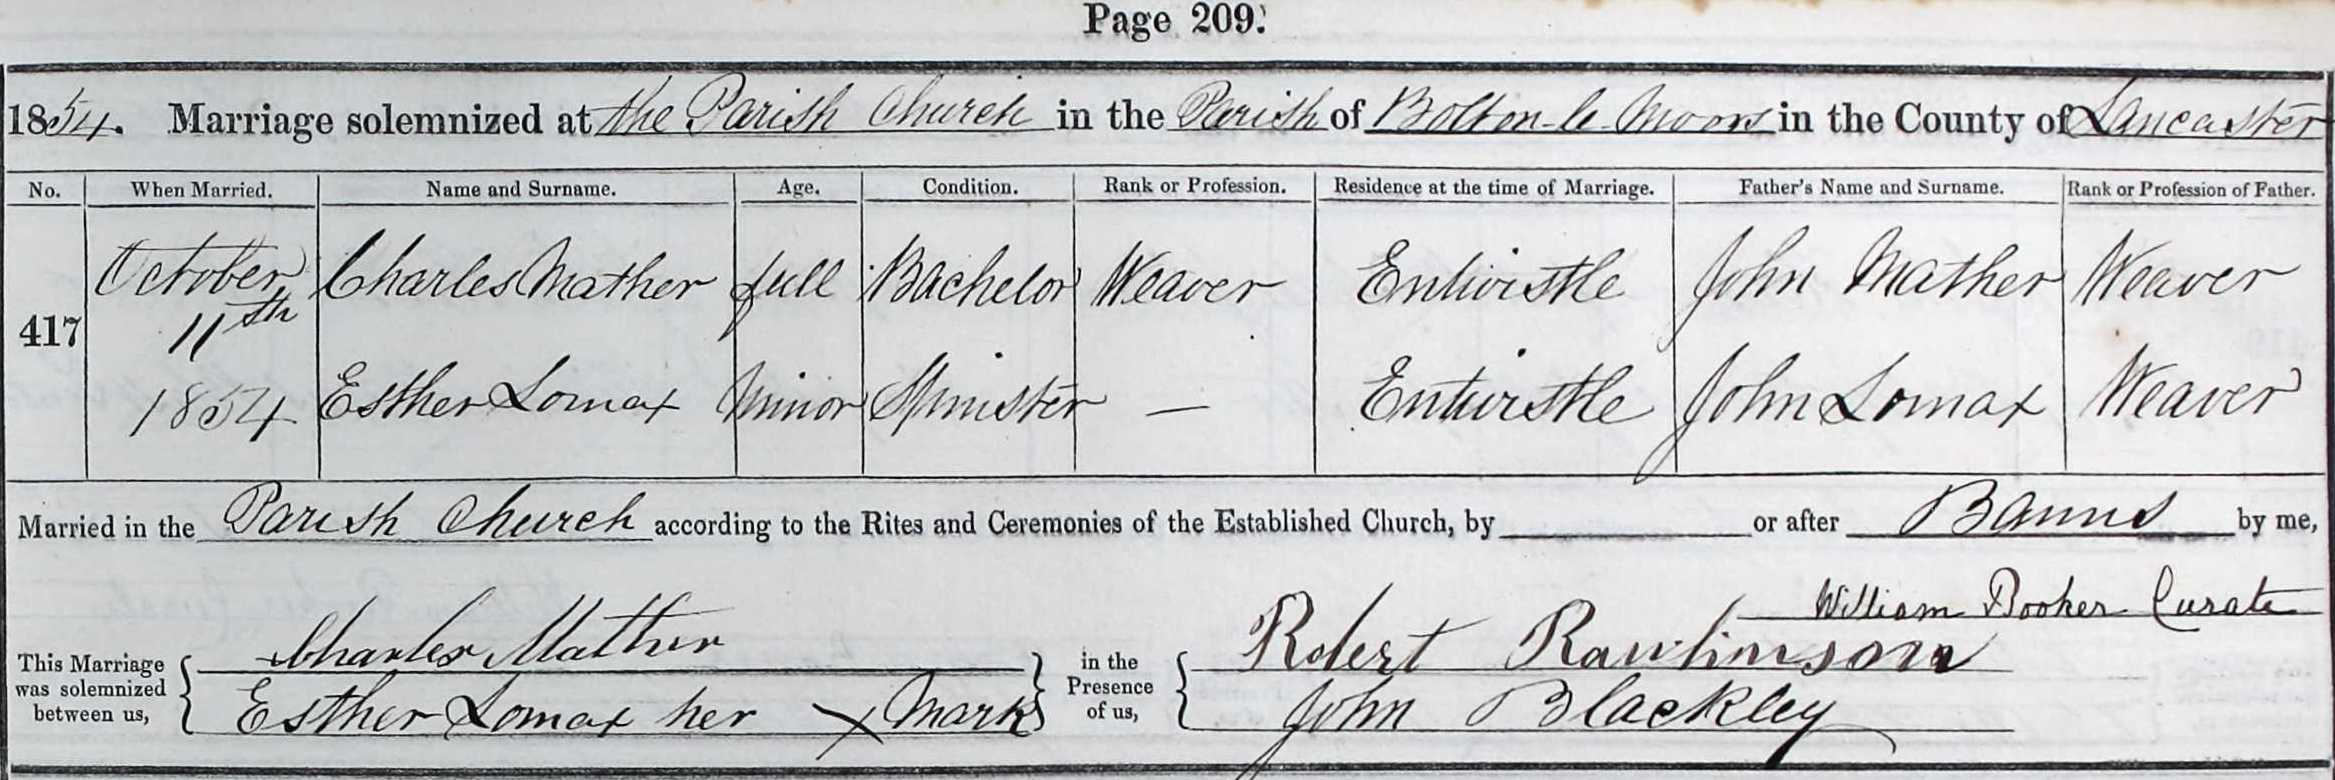 Page 209.
1854. Marriage solemnized at the Parish Church in the Parish of Bolton-le-Moors in the County of Lancaster
No. When Married. Name and Surname. Age. Condition. Rank or Profession. Residence at the time of Marriage. Father's Name and Surname. Rank or Profession of Father.
October Charles Mather full Bachelor Weaver Entwistle John Mather Weaver
417 11th
1854 Esther Lomax Minor Spinster — Entwistle John Lomax Weaver
Married in the Parish Church according to the Rites and Ceremonies of the Established Church, by or after Banns by me,
William Booker Curate
This Marriage was solemnized between us, Charles Mather in the Presence of us, Robert Rawlinson
Esther Lomax her X Mark John Blackley